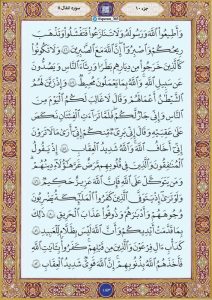 جزء ۱۰
سوره انفال ۸
وَأَطِيعُوا۟ ٱللَّهَ وَرَسُولَهُۥ وَلَا تَنَٰزَعُوا۟ فَتَفْشَلُوا۟ وَتَذْهَبَ
رِيحُكُمْ وَٱصْبِرُوٓا۟ إِنَّ ٱللَّهَ مَعَ ٱلصَّٰبِرِينَ ٤٦ وَلَا تَكُونُوا۟
كَٱلَّذِينَ خَرَجُوا۟ مِن دِيَٰرِهِم بَطَرًا وَرِئَآءَ ٱلنَّاسِ وَيَصُدُّونَ
عَن سَبِيلِ ٱللَّهِ وَٱللَّهُ بِمَا يَعْمَلُونَ مُحِيطٌ ٤٧ وَإِذْ زَيَّنَ لَهُمُ
ٱلشَّيْطَٰنُ أَعْمَٰلَهُمْ وَقَالَ لَا غَالِبَ لَكُمُ ٱلْيَوْمَ مِنَ
ٱلنَّاسِ وَإِنِّى جَارٌ لَّكُمْ فَلَمَّا تَرَآءَتِ ٱلْفِئَتَانِ نَكَصَ
عَلَىٰ عَقِبَيْهِ وَقَالَ إِنِّى بَرِىٓءٌ مِّنكُمْ إِنِّىٓ أَرَىٰ مَا لَا تَرَوْنَ
إِنِّىٓ أَخَافُ ٱللَّهَ وَٱللَّهُ شَدِيدُ ٱلْعِقَابِ ٤٨ إِذْ يَقُولُ
ٱلْمُنَٰفِقُونَ وَٱلَّذِينَ فِى قُلُوبِهِم مَّرَضٌ غَرَّ هَٰٓؤُلَآءِ دِينُهُمْ
وَمَن يَتَوَكَّلْ عَلَى ٱللَّهِ فَإِنَّ ٱللَّهَ عَزِيزٌ حَكِيمٌ ٤٩
وَلَوْ تَرَىٰٓ إِذْ يَتَوَفَّى ٱلَّذِينَ كَفَرُوا۟ ٱلْمَلَٰٓئِكَةُ يَضْرِبُونَ
وُجُوهَهُمْ وَأَدْبَٰرَهُمْ وَذُوقُوا۟ عَذَابَ ٱلْحَرِيقِ ٥٠ ذَٰلِكَ
بِمَا قَدَّمَتْ أَيْدِيكُمْ وَأَنَّ ٱللَّهَ لَيْسَ بِظَلَّٰمٍ لِّلْعَبِيدِ ٥١
كَدَأْبِ ءَالِ فِرْعَوْنَ وَٱلَّذِينَ مِن قَبْلِهِمْ كَفَرُوا۟ بِـَٔايَٰتِ ٱللَّهِ
فَأَخَذَهُمُ ٱللَّهُ بِذُنُوبِهِمْ إِنَّ ٱللَّهَ قَوِىٌّ شَدِيدُ ٱلْعِقَابِ ٥٢
۱۸۳